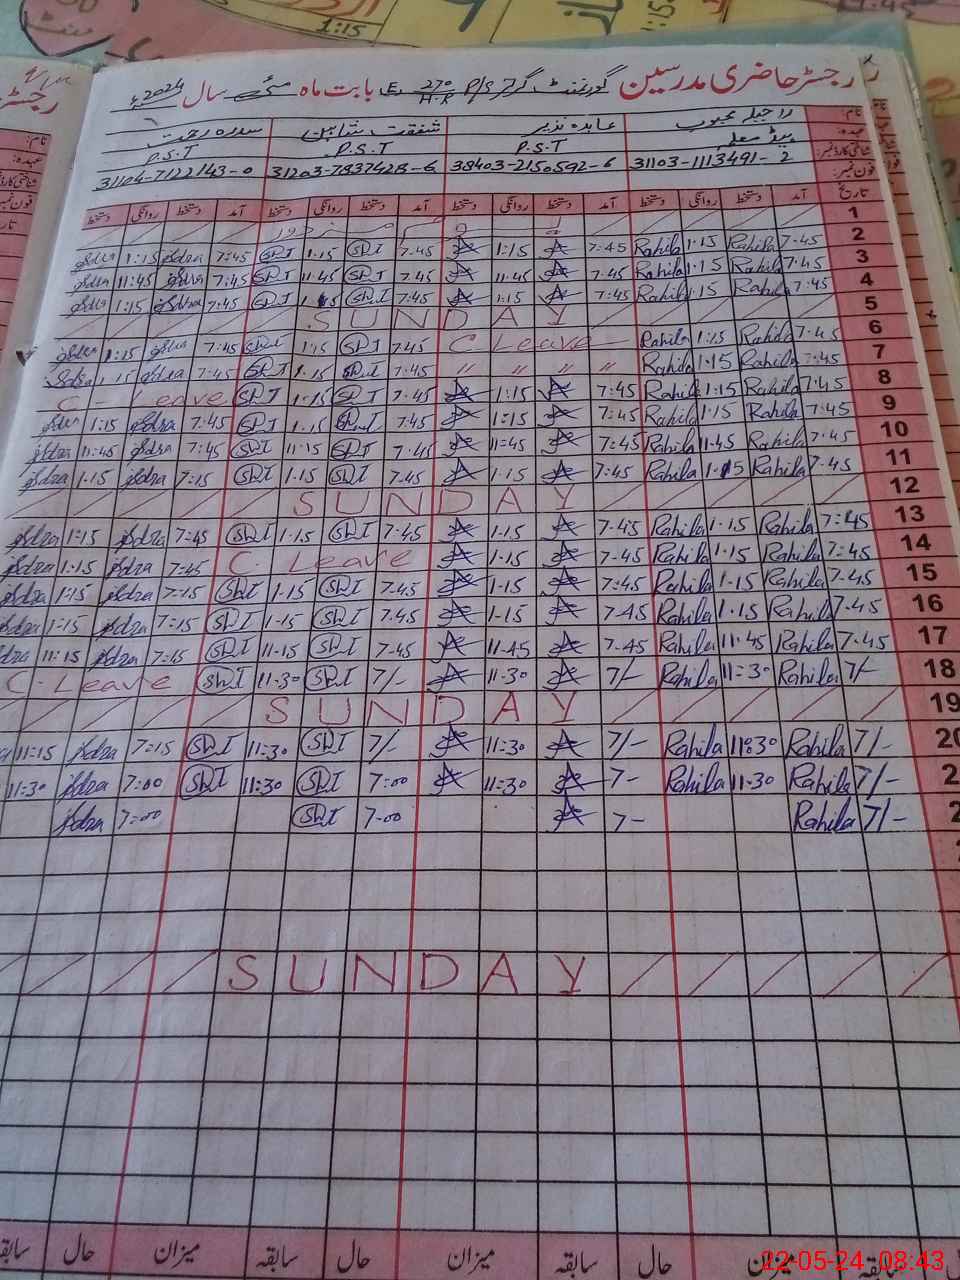 1:15
رجسٹر حاضری مدرسین گورنمنٹ گرلز P/S 270/H.R E. بابت ماہ مئی سال 2024ء
نام: راحیلہ محبوب عابدہ نذیر شفقت شاہین سدرہ رحمت
عہدہ: ہیڈ معلمہ P.S.T P.S.T P.S.T
شناختی کارڈ نمبر: 31103-1113491-2 38403-2150592-6 31203-7837428-6 31104-7122143-0
فون نمبر:
تاریخ آمد دستخط روانگی دستخط آمد دستخط روانگی دستخط آمد دستخط روانگی دستخط آمد دستخط روانگی دستخط
1
2 7:45 Rahila 1:15 Rahila 7:45 1:15 7:45 SDI 1:15 SDI 7:45 Sdra 1:15
3 7:45 Rahila 1:15 Rahila 7:45 11:45 7:45 SDI 11:45 SDI 7:45 Sdra 11:45
4 7:45 Rahila 1:15 Rahila 7:45 1:15 7:45 SDI 1:15 SDI 7:45 Sdra 1:15
5 SUNDAY
6 7:45 Rahila 1:15 Rahila C Leave 7:45 SDI 1:15 SDI 7:45 1:15
7 7:45 Rahila 1:15 Rahila " " " " 7:45 SDI 1:15 SDI 7:45 Sdra 1:15 Sdra
8 7:45 Rahila 1:15 Rahila 7:45 1:15 7:45 SDI 1:15 SDI C-Leave
9 7:45 Rahila 1:15 Rahila 7:45 1:15 7:45 1:15 SDI 7:45 Sdra 1:15
10 7:45 Rahila 11:45 Rahila 7:45 11:45 7:45 SDI 11:15 SDI 7:45 Sdra 11:45 Sdra
11 7:45 Rahila 1:15 Rahila 7:45 1:15 7:45 SDI 1:15 SDI 7:15 Sdra 1:15 Sdra
12 SUNDAY
13 7:45 Rahila 1:15 Rahila 7:45 1:15 7:45 SDI 1:15 SDI 7:45 Sdra 1:15 Sdra
14 7:45 Rahila 1:15 Rahila 7:45 1:15 C. Leave 7:45 Sdra 1:15 Sdra
15 7:45 Rahila 1:15 Rahila 7:45 1:15 7:45 SDI 1:15 SDI 7:15 Sdra 1:15 Sdra
16 7:45 Rahila 1:15 Rahila 7:45 1:15 7:45 SDI 1:15 SDI 7:15 Sdra 1:15 Sdra
17 7:45 Rahila 11:45 Rahila 7:45 11:45 7:45 SDI 11:15 SDI 7:15 Sdra 11:15
18 7/- Rahila 11:30 Rahila 7/- 11:30 7/- SDI 11:30 SDI C-Leave
19 SUNDAY
20 7/- Rahila 11:30 Rahila 7/- 11:30 7/- SDI 11:30 SDI 7:15 Sdra 11:15
2 7/- Rahila 11:30 Rahila 7- 11:30 7:00 SDI 11:30 SDI 7:00 Sdra 11:30
2 7/- Rahila 7- 7:00 SDI 7:00 Sdra
SUNDAY
سابقہ میزان حال سابقہ میزان حال سابقہ میزان حال سابقہ
22-05-24-08:43